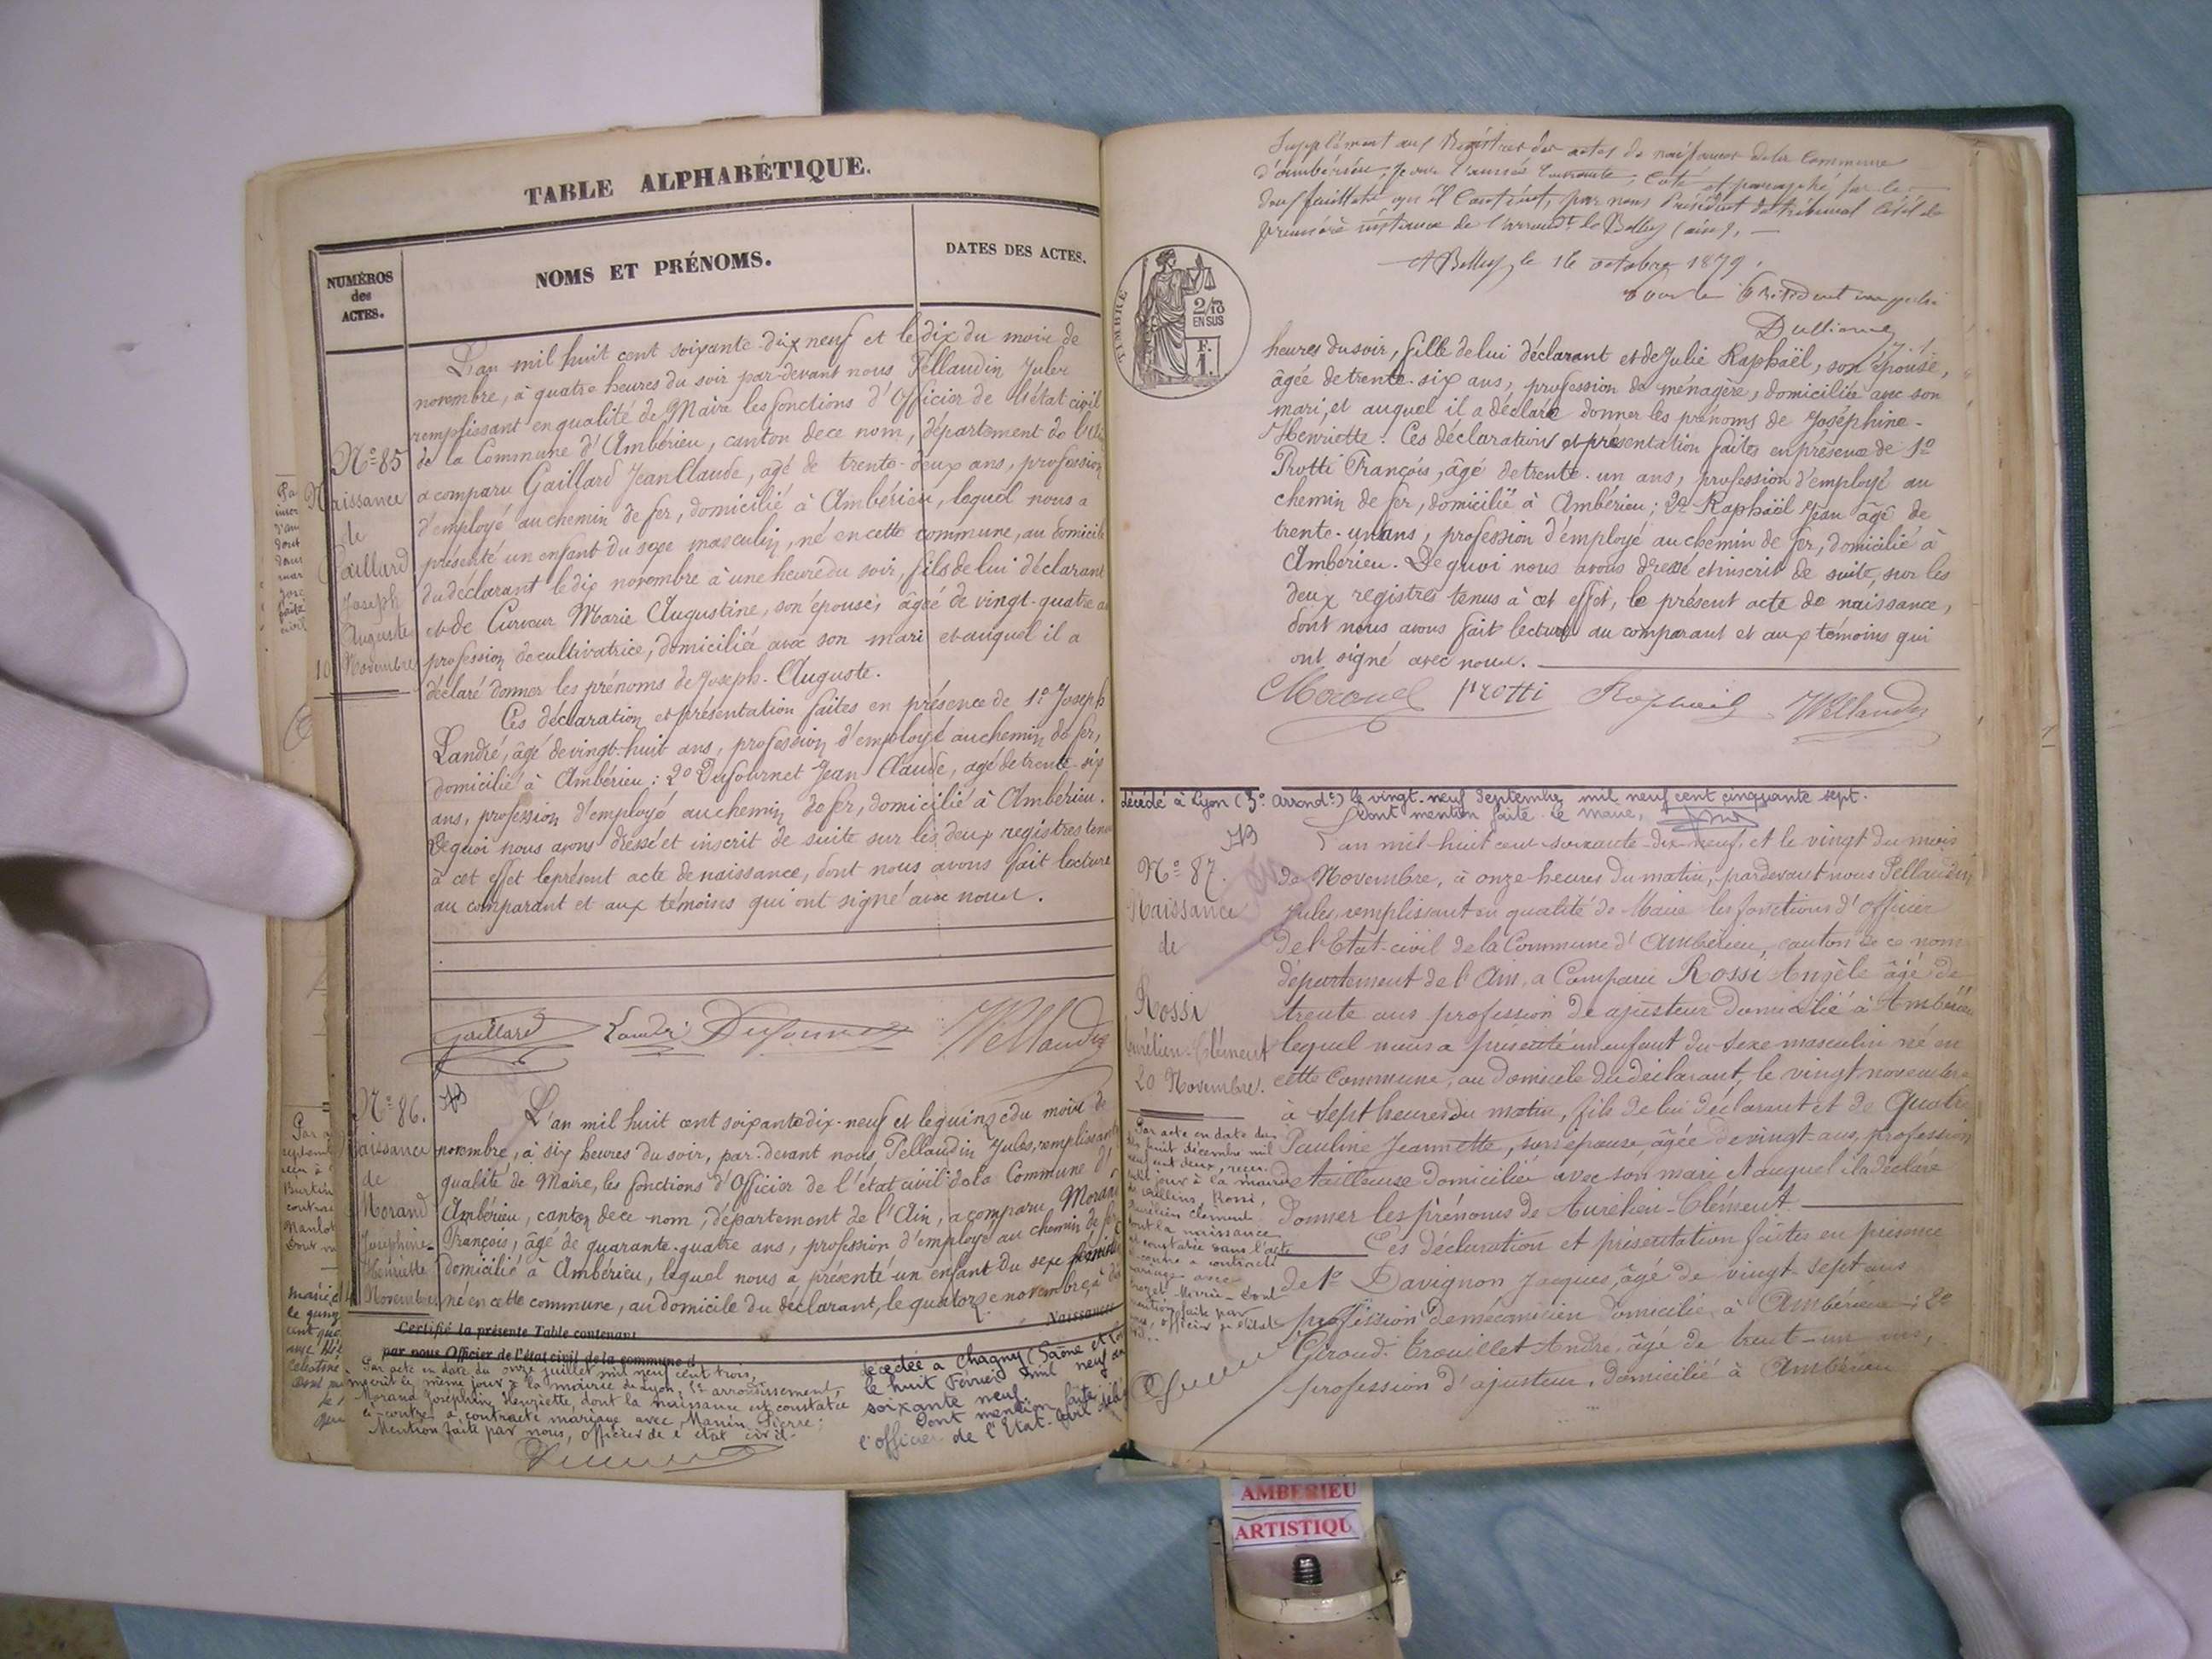 TABLE ALPHABÉTIQUE.
NUMÉROS
des
ACTES.
NOMS ET PRÉNOMS.
DATES DES ACTES.
L'an mil huit cent soixante-dix neuf et le dix du mois de
novembre, à quatre heures du soir par-devant nous Pellaudin Jules
remplissant en qualité de Maire les fonctions d'Officier de l'état civil
de la Commune d'Ambérieu, canton de ce nom, département de l'Ain
a comparu Gaillard Jean Claude, agé de trente-deux ans, profession
d'employé au chemin de fer, domicilié à Ambérieu, lequel nous a
présenté un enfant du sexe masculin, né en cette commune, au domicile
du déclarant le dix novembre à une heure du soir, fils de lui déclarant
et de Marie Augustine, son épouse, âgée de vingt-quatre
profession de cultivatrice, domiciliée avec son mari et auquel il a
déclaré donner les prénoms de Joseph-Auguste.
Ces déclaration et présentation faites en présence de 1º Joseph
Landré, âgé de vingt-huit ans, profession d'employé au chemin de fer,
domicilié à Ambérieu; 2º Dufournet Jean Claude, agé de trente-six
ans, profession d'employé au chemin de fer, domicilié à Ambérieu.
De quoi nous avons dressé et inscrit de suite sur les deux registres tenus
à cet effet le présent acte de naissance, dont nous avons fait lecture
au comparant et aux témoins qui ont signé avec nous.
Nº 85
Naissance
de
Gaillard
Joseph
Auguste
10 Novembre
Gaillard Landré Dufournet Pellaudin
Nº 86.
Naissance
de
Morand
Joséphine-
Henriette
14 Novembre
L'an mil huit cent soixante dix-neuf et le quinze du mois de
novembre, à six heures du soir, par-devant nous, Pellaudin Jules, remplissant
qualité de Maire, les fonctions d'Officier de l'état civil de la Commune d'
Ambérieu, canton de ce nom, département de l'Ain, a comparu Morand
François, âgé de quarante-quatre ans, profession d'employé au chemin de fer
domicilié à Ambérieu, lequel nous a présenté un enfant du sexe féminin
né en cette commune, au domicile du déclarant, le quatorze novembre, à dix
Naissances
Certifié la présente Table contenant
par nous Officier de l'état civil de la commune d
Par acte en date du onze juillet mil neuf cent trois,
inscrit le même jour à la mairie de Lyon, arrondissement,
Morand Joséphine Henriette, dont la naissance est constatée
ci-contre a contracté mariage avec Manin Pierre;
Mention faite par nous, officier de l'état civil.
décédée à Chagny (Saône et
le huit Février mil neuf cent
soixante neuf.
Dont mention faite
l'officier de l'Etat-civil
Supplément aux Registres des actes de naissances de la Commune
d'ambérieu, pour l'année courante, coté et paraphé par le
feuillets qu'il contient, par nous Président du tribunal civil de
première instance de l'arrondt de Belley (ain),
A Belley, le 16 octobre 1879.
TIMBRE
2/10
EN SUS
F.
1.
heures du soir, fille de lui déclarant et de Julie Raphaël, son épouse,
âgée de trente-six ans, profession de ménagère, domiciliée avec son
mari, et auquel il a déclaré donner les prénoms de Joséphine-
Henriette. Ces déclaration et présentation faites en présence de 1º
Protti François, âgé de trente-un ans, profession d'employé au
chemin de fer, domicilié à Ambérieu; 2º Raphaël Jean âgé de
trente-un ans, profession d'employé au chemin de fer, domicilié à
Ambérieu. De quoi nous avons dressé et inscrit de suite, sur les
deux registres tenus à cet effet, le présent acte de naissance,
dont nous avons fait lecture au comparant et aux témoins qui
ont signé avec nous.
Protti Raphaël Pellaudin
décédé à Lyon (3º arrondt) le vingt-neuf Septembre mil neuf cent cinquante sept.
Dont mention faite. Le Maire,
Nº 87.
Naissance
de
Rossi
Aurélien-Clément
20 Novembre.
L'an mil-huit cent-soixante-dix-neuf, et le vingt du mois
de Novembre, à onze heures du matin, pardevant nous Pellaudin
Jules, remplissant en qualité de Maire les fonctions d'officier
de l'Etat-civil de la Commune d'Ambérieu, canton de ce nom
département de l'Ain, a Comparu Rossi Angèle âgé de
trente ans profession de ajusteur domicilié à Ambérieu
lequel nous a présenté un enfant du sexe masculin né en
cette Commune, au domicile du déclarant, le vingt novembre
à sept heures du matin, fils de lui déclarant et de Quatre
Pauline Jeannette, son épouse, âgée de vingt ans, profession
de tailleuse domiciliée avec son mari et auquel il a déclaré
Donner les prénoms de Aurélien-Clément.
Ces déclaration et présentation faites en présence
de 1º Davignon Jacques, âgé de vingt-sept ans
profession de mécanicien domicilié à Ambérieu; 2º
Giroud-Trouillet André, âgé de trent-un ans,
profession d'ajusteur, domicilié à Ambérieu
Par acte en date du
dix huit décembre mil
neuf cent deux, reçu
jour à la mairie
Rossi,
Aurélien Clément
dont la naissance
est constatée dans l'acte
ci-contre a contracté
mariage avec
Marie. Dont
mention faite par
nous, officier de l'état
AMBERIEU
ARTISTIQU